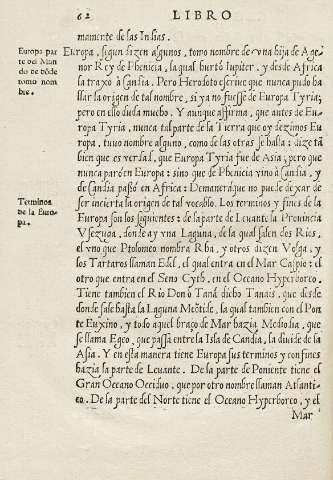 62 LIBRO
mamente de las Indias.
Europa par
te del Mun
do de dõde
tomo nom
bre.
Europa, segun dizen algunos, tomo nombre de vna hija de Age-
nor Rey de Phenicia, la qual hurtò Iupiter, y desde Africa
la traxo à Candia. Pero Herodoto escriue que nunca pudo ha-
llar la origen de tal nombre, si ya no fuesse de Europa Tyria;
pero en ello duda mucho. Y aunque affirma, que antes de Eu-
ropa Tyria, nunca tal parte de la Tierra que oy dezimos Eu-
ropa, tuuo nombre alguno, como de las otras se halla: dize tã
bien que es verdad, que Europa Tyria fue de Asia; pero que
nunca parò en Europa: sino que de Phenicia vino à Candia, y
de Candia passò en Africa: Demanera que no puede dexar de
ser incierta la origen de tal vocablo. Los terminos y fines de la
Terminos
de la Euro-
pa.
Europa son los siguientes: de la parte de Leuante la Prouincia
Vsezuga, donde ay vna Laguna, de la qual salen dos Rios,
el vno que Ptolomeo nombra Rha, y otros dizen Volga, y
los Tartaros llaman Edel, el qual entra en el Mar Caspio: el
otro que entra en el Seno Cyth. en el Oceano Hyperboreo.
Tiene tambien el Rio Don ò Tanà dicho Tanais, que desde
donde sale hasta la Laguna Meotide, la qual tambien con el Pon
te Euxino, y todo aquel braço de Mar hazia Mediodia, que
se llama Egeo, que passa entre la Isla de Candia, la diuide de la
Asia. Y en esta manera tiene Europa sus terminos y confines
hazia la parte de Leuante. De la parte de Poniente tiene el
Gran Oceano Occiduo, que por otro nombre llaman Atlanti-
co. De la parte del Norte tiene el Oceano Hyperboreo, y el
Mar